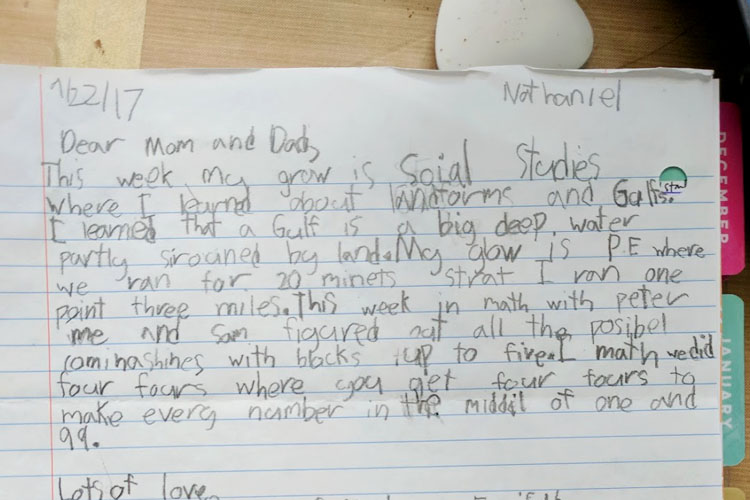 1/22/17
Nathaniel
Dear Mom and Dad,
This week my grow is Soial Studies
where I learned about landforms and Gulfs.
I learned that a Gulf is a big deep water
partly sirouned by land. My glow is P.E where
we ran for 20 minets strat I ran one
point three miles. This week in math with peter
me and Sam figured out all the posibel
cominashines with blocks up to five. I math we did
four fours where you get four fours to
make every number in the middil of one and
99.
Lots of love,
DECEMBER
JANUARY